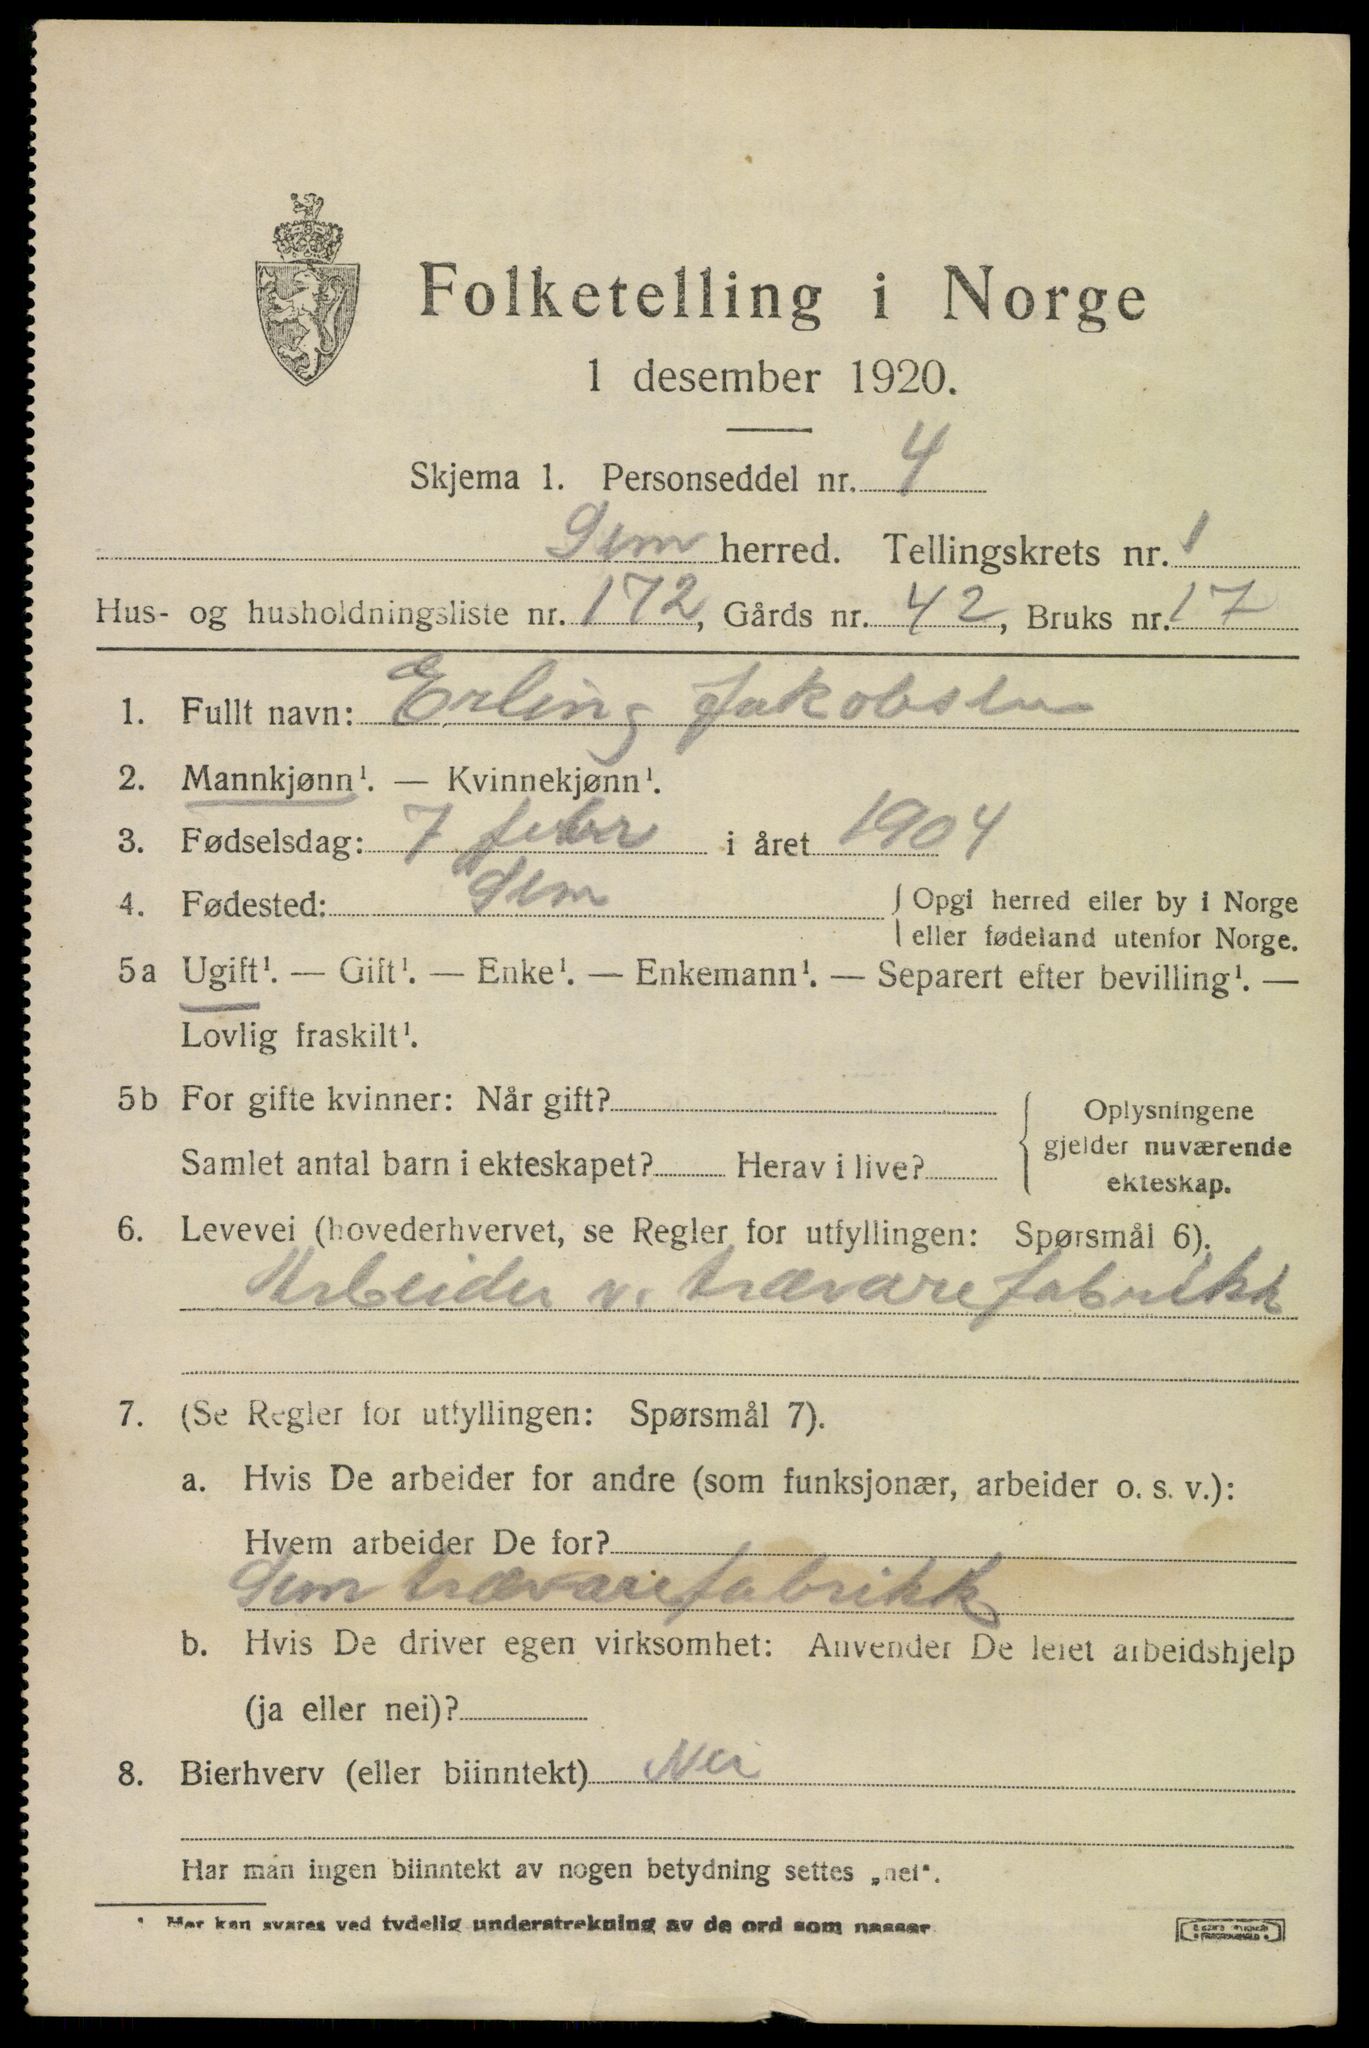 Folketelling i Norge
1 desember 1920.
Skjema 1. Personseddel nr. 4
Sem herred. Tellingskrets nr. 1
Hus- og husholdningsliste nr. 172, Gårds nr. 42, Bruks nr. 17
1. Fullt navn: Erling Jakobsen
2. Mannkjønn¹. — Kvinnekjønn¹.
3. Fødselsdag: 7 febr i året 1904
4. Fødested: Sem { Opgi herred eller by i Norge
eller fødeland utenfor Norge.
5a Ugift¹. — Gift¹. — Enke¹. — Enkemann¹. — Separert efter bevilling¹. —
Lovlig fraskilt¹.
5b For gifte kvinner: Når gift?
Samlet antal barn i ekteskapet? Herav i live?
{ Oplysningene
gjelder nuværende
ekteskap.
6. Levevei (hovederhvervet, se Regler for utfyllingen: Spørsmål 6).
Arbeider v. trævarefabrikk
7. (Se Regler for utfyllingen: Spørsmål 7).
a. Hvis De arbeider for andre (som funksjonær, arbeider o. s. v.):
Hvem arbeider De for?
Sem trævarefabrikk
b. Hvis De driver egen virksomhet: Anvender De leiet arbeidshjelp
(ja eller nei)?
8. Bierhverv (eller biinntekt) Nei
Har man ingen biinntekt av nogen betydning settes „nei“.
¹ Her kan svares ved tydelig understrekning av de ord som passer